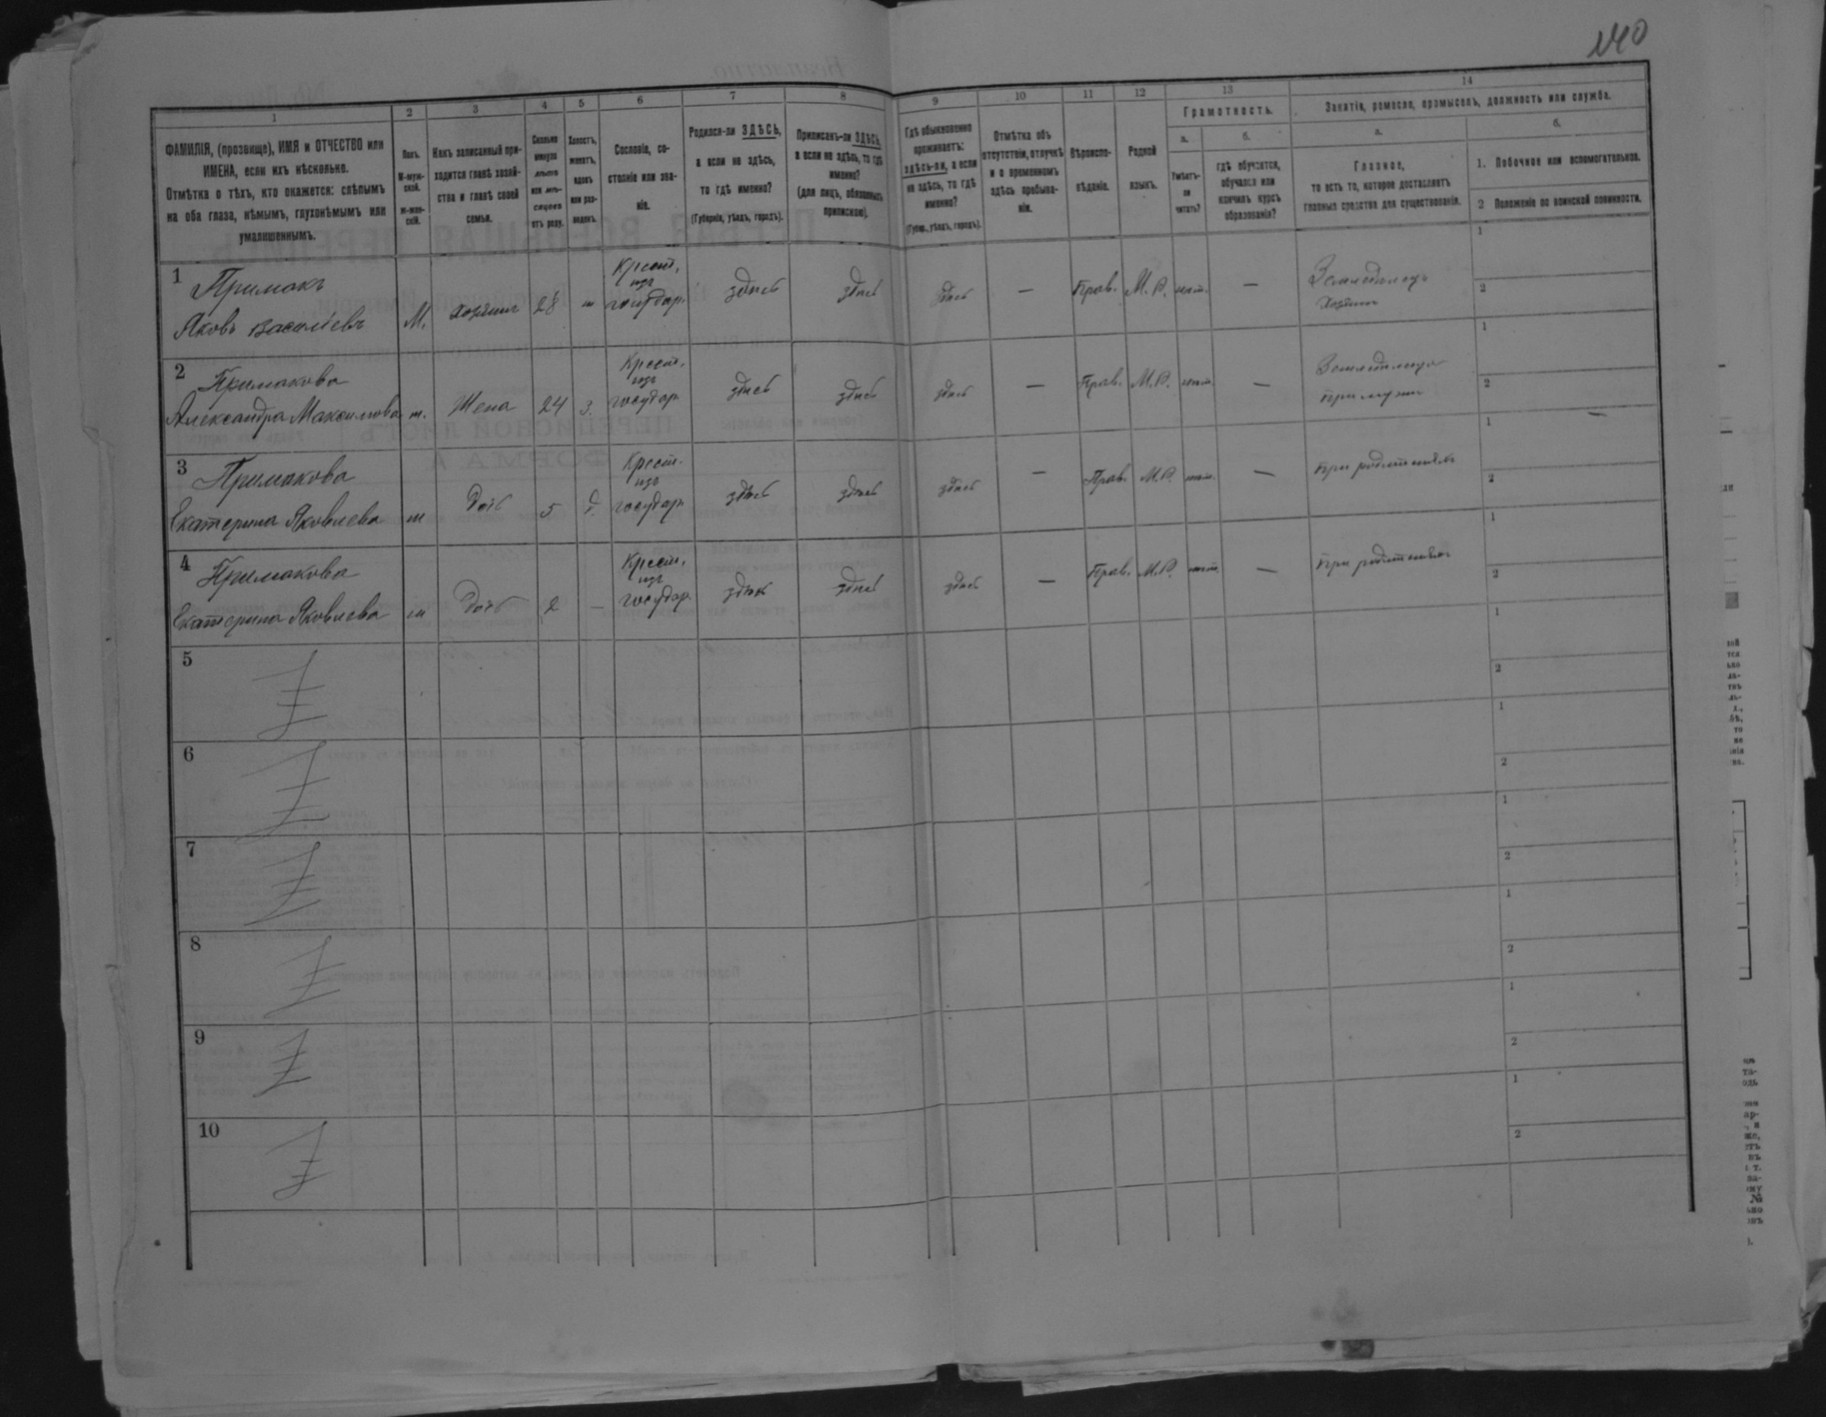 140
1
2
3
4
5
6
7
8
9
10
11
12
13
14
ФАМИЛІЯ, (прозвище), ИМЯ и ОТЧЕСТВО или
ИМЕНА, если ихъ нѣсколько.
Отмѣтка о тѣхъ, кто окажется: слѣпымъ
на оба глаза, нѣмымъ, глухонѣмымъ или
умалишеннымъ.
Полъ.
М-муж-
ской.
ж-жен-
скій.
Какъ записанный при-
ходится главѣ хозяй-
ства и главѣ своей
семьи.
Сколько
минуло
лѣтъ
или мѣ-
сяцевъ
отъ роду.
Холостъ,
женатъ,
вдовъ
или раз-
веденъ.
Сословіе, со-
стояніе или зва-
ніе.
Родился-ли ЗДѢСЬ,
а если не здѣсь,
то гдѣ именно?
(Губернія, уѣздъ, городъ).
Приписанъ-ли ЗДѢСЬ,
а если не здѣсь, то гдѣ
именно?
(для лицъ, обязанныхъ
припиской).
Гдѣ обыкновенно
проживаетъ:
здѣсь-ли, а если
не здѣсь, то гдѣ
именно?
(Губер., уѣздъ, городъ).
Отмѣтка объ
отсутствіи, отлучкѣ
и о временномъ
здѣсь пребыва-
ніи.
Вѣроиспо-
вѣданіе.
Родной
языкъ.
Грамотность.
а.
Умѣетъ-
ли
читать?
б.
гдѣ обучается,
обучался или
кончилъ курсъ
образованія?
Занятія, ремесло, промыселъ, должность или служба.
а.
Главное,
то есть то, которое доставляетъ
главныя средства для существованія.
б.
1. Побочное или вспомогательное.
2 Положеніе по воинской повинности.
1
Примакъ
Яковъ Василіевъ
М.
хозяинъ
28
ж
Крест.
изъ
государ.
здѣсь
здѣсь
здѣсь
—
Прав.
М. Р.
нѣт.
—
Земледѣлецъ
хозяинъ
1
2
2
Примакова
Александра Максимова
ж.
Жена
24
з.
Крест.
изъ
государ
здѣсь
здѣсь
здѣсь
—
Прав.
М. Р.
нѣт.
—
при мужѣ
1
2
3
Примакова
Екатерина Яковлева
ж
Дочь
5
д.
Крест.
изъ
государ
здѣсь
здѣсь
здѣсь
—
Прав.
М. Р.
нѣт.
—
при родителяхъ
1
2
4
Примакова
Екатерина Яковлева
ж
Дочь
2
—
Крест.
изъ
государ
здѣсь
здѣсь
здѣсь
—
Прав.
М. Р.
нѣт.
—
при родителяхъ
1
2
5
1
2
6
1
2
7
1
2
8
1
2
9
1
2
10
1
2